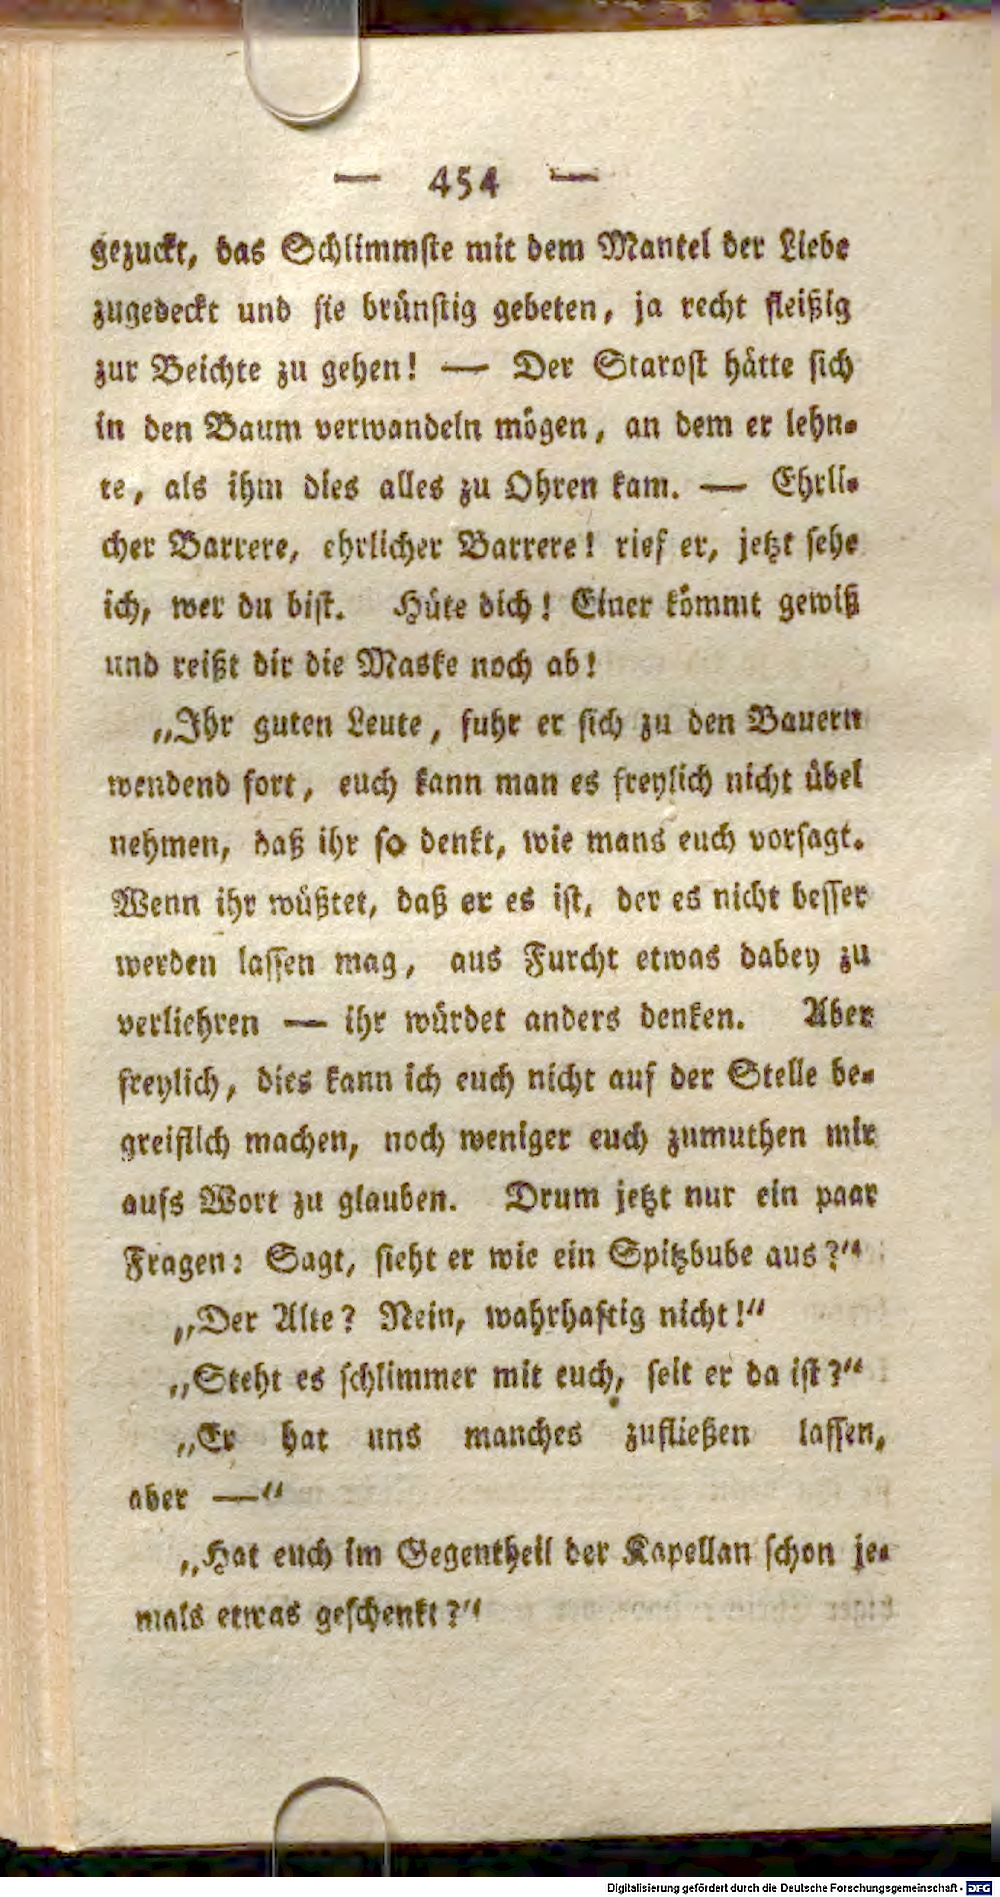 — 454 —
gezuckt, das Schlimmste mit dem Mantel der Liebe
zugedeckt und sie brünstig gebeten, ja recht fleißig
zur Beichte zu gehen! — Der Starost hätte sich
in den Baum verwandeln mögen, an dem er lehn-
te, als ihm dies alles zu Ohren kam. — Ehrli-
cher Barrere, ehrlicher Barrere! rief er, jetzt sehe
ich, wer du bist. Hüte dich! Einer kömmt gewiß
und reißt dir die Maske noch ab!
„Ihr guten Leute, fuhr er sich zu den Bauern
wendend fort, euch kann man es freylich nicht übel
nehmen, daß ihr so denkt, wie mans euch vorsagt.
Wenn ihr wüßtet, daß er es ist, der es nicht besser
werden lassen mag, aus Furcht etwas dabey zu
verliehren — ihr würdet anders denken. Aber
freylich, dies kann ich euch nicht auf der Stelle be-
greiflich machen, noch weniger euch zumuthen mir
aufs Wort zu glauben. Drum jetzt nur ein paar
Fragen: Sagt, sieht er wie ein Spitzbube aus?“
„Der Alte? Nein, wahrhaftig nicht!“
„Steht es schlimmer mit euch, seit er da ist?“
„Er hat uns manches zufließen lassen,
aber —“
„Hat euch im Gegentheil der Kapellan schon je-
mals etwas geschenkt?“
Digitalisierung gefördert durch die Deutsche Forschungsgemeinschaft - DFG